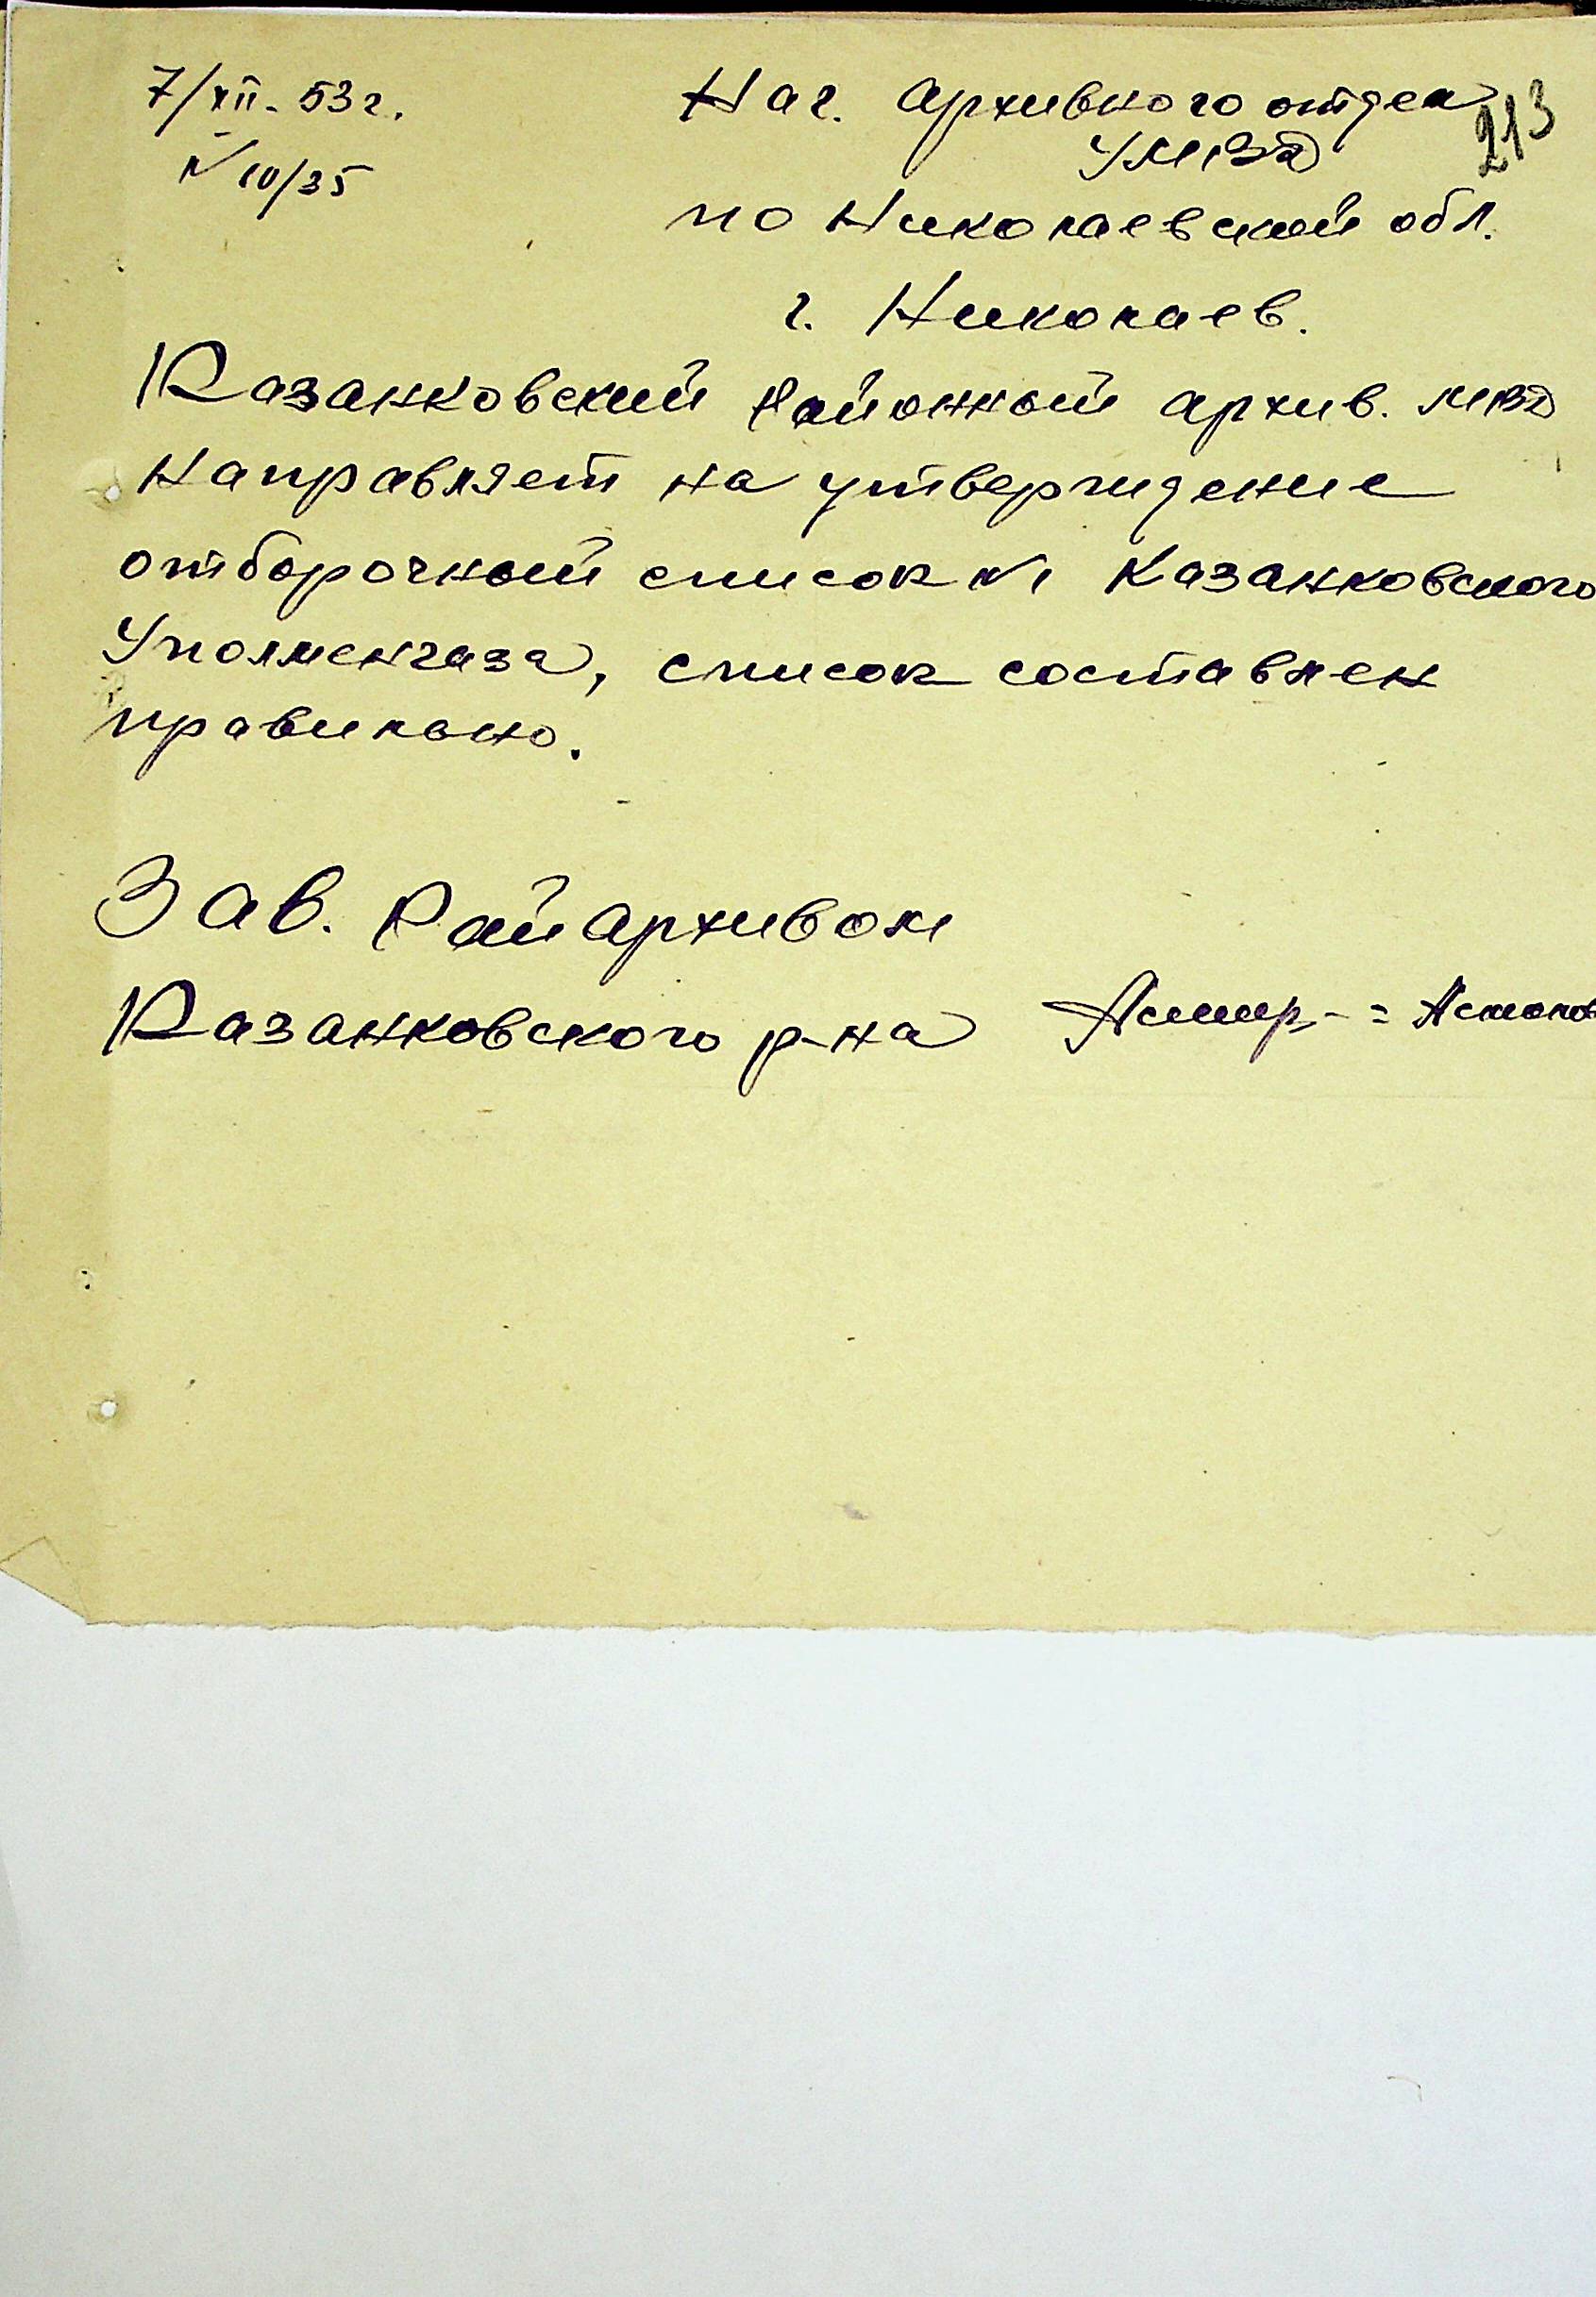 7/XII-53г.
№ 10/35
213
Нач. Архивного отдела
УМВД
по Николаевской обл.
г. Николаев.
Казанковский Районный архив. МВД
направляет на утверждение
отборочный список Казанковского
Уполменгаза, список составлен
правильно.
Зав. Райархивом
Казанковского р-на